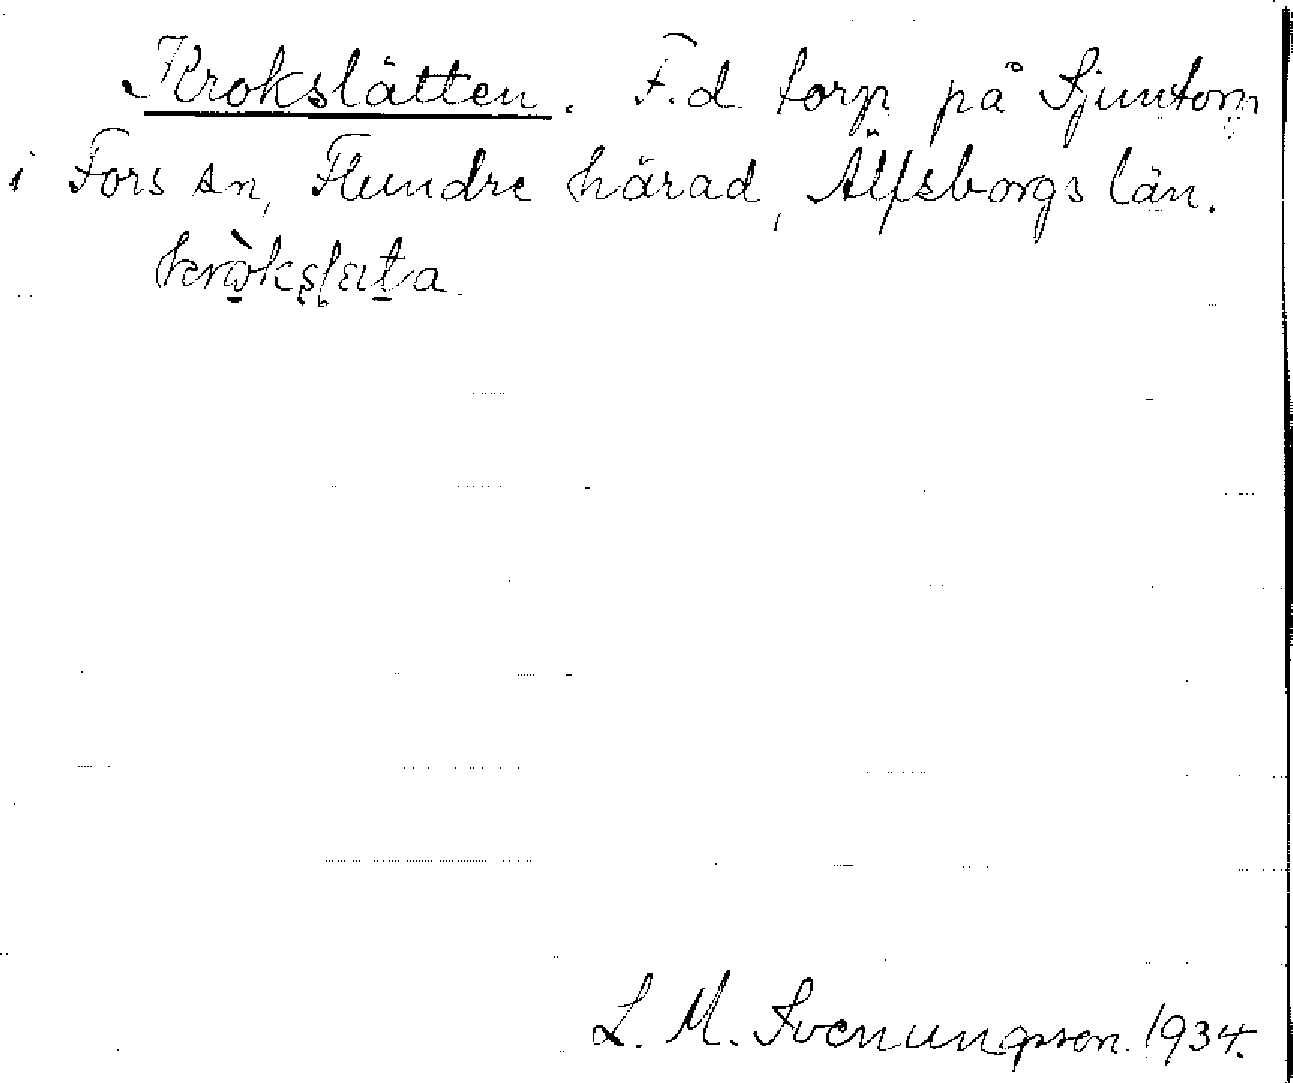 Krokslätten. F.d torp på Sjuntorp
i Fors sn, Flundre härad, Älfsborgs län.
L. M. Svenungsson. 1934.